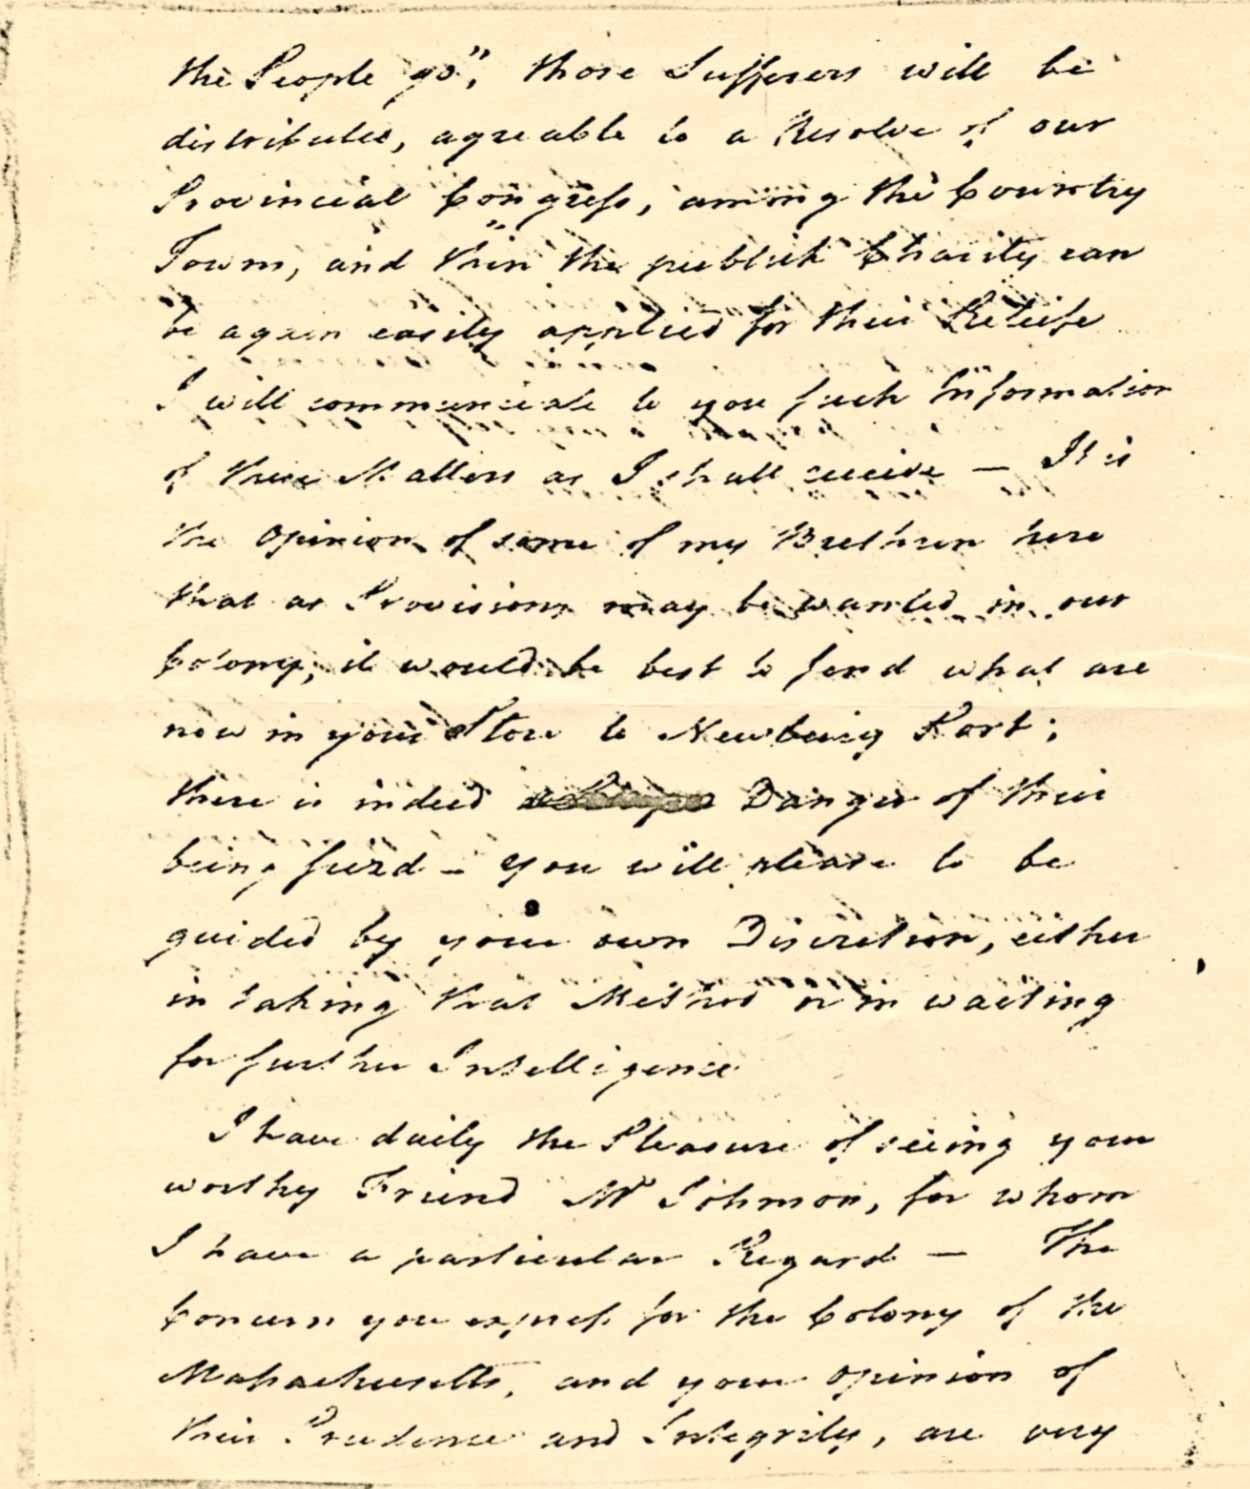 the People go", those Sufferers will be
distributed, agreable to a Resolve of our
Provincial Congress, among the Country
Towns, and then the publick Charity can
be again easily applied for their Reliefe
I will communicate to you such Information
of these Matters as I shall receive — It is
the opinion of some of my Brethren here
that as Provisions may be wanted in our
Colony, it would be best to send what are
now in your Store to Newbury Port;
there is indeed Danger of their
being seizd - you will please to be
guided by your own Discretion, either
in taking that Method or in waiting
for further Intelligence
I have daily the Pleasure of seeing your
worthy Friend Mr Johnson, for whom
I have a particular Regard — The
Concern you express for the Colony of the
Massachusetts, and your opinion of
their Prudence and Integrity, are very